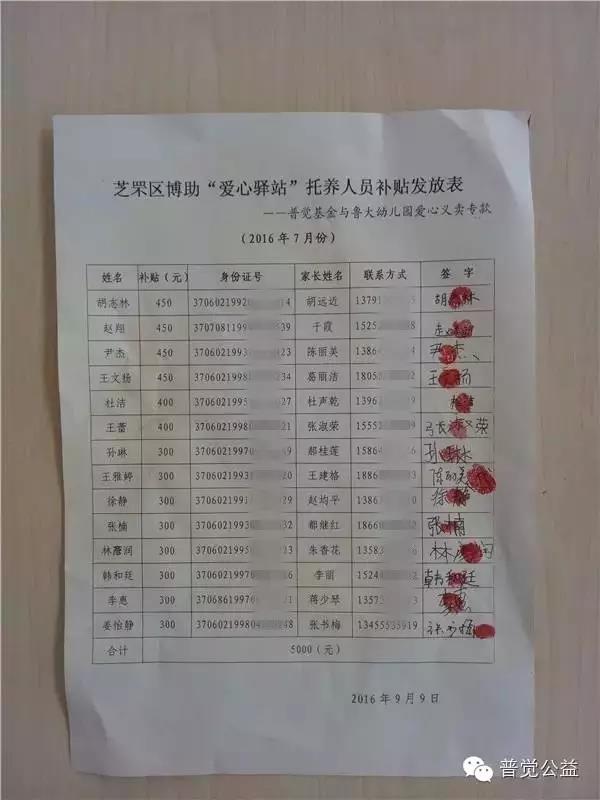 芝罘区博助“爱心驿站”托养人员补贴发放表
——普觉基金与鲁大幼儿园爱心义卖专款
（2016年7月份）
姓名 补贴（元） 身份证号 家长姓名 联系方式 签 字
胡志林 450 37060219920 14 胡远近 13791 胡志林
赵翔 450 37070811990 539 于霞 15252 8
尹杰 450 3706021993 24 陈丽英 1386 尹杰
王文扬 450 3706021998 34 葛丽洁 1805 2 王文扬
杜洁 400 3706021995 27 杜声乾 1396 杜洁
王蕾 400 3706021998 21 张淑荣 1555 9 张淑荣
孙琳 300 370602199 27 郝桂莲 15864 6
王雅婷 300 3706021993 36 王建格 1886 3
徐静 300 3706021991 29 赵均平 1386 0 徐静
张楠 300 3706021993 32 都继红 1866 2 张楠
林蘑润 300 3706021995 23 朱香花 1358 6
韩和廷 300 370602199 6 李丽 1524 2 韩和廷
李惠 300 3706861997 21 蒋少琴 1357 3 李惠
姜怡静 300 370602199804 248 张书梅 13455535919
合计 5000（元）
2016年9月9日
普觉公益